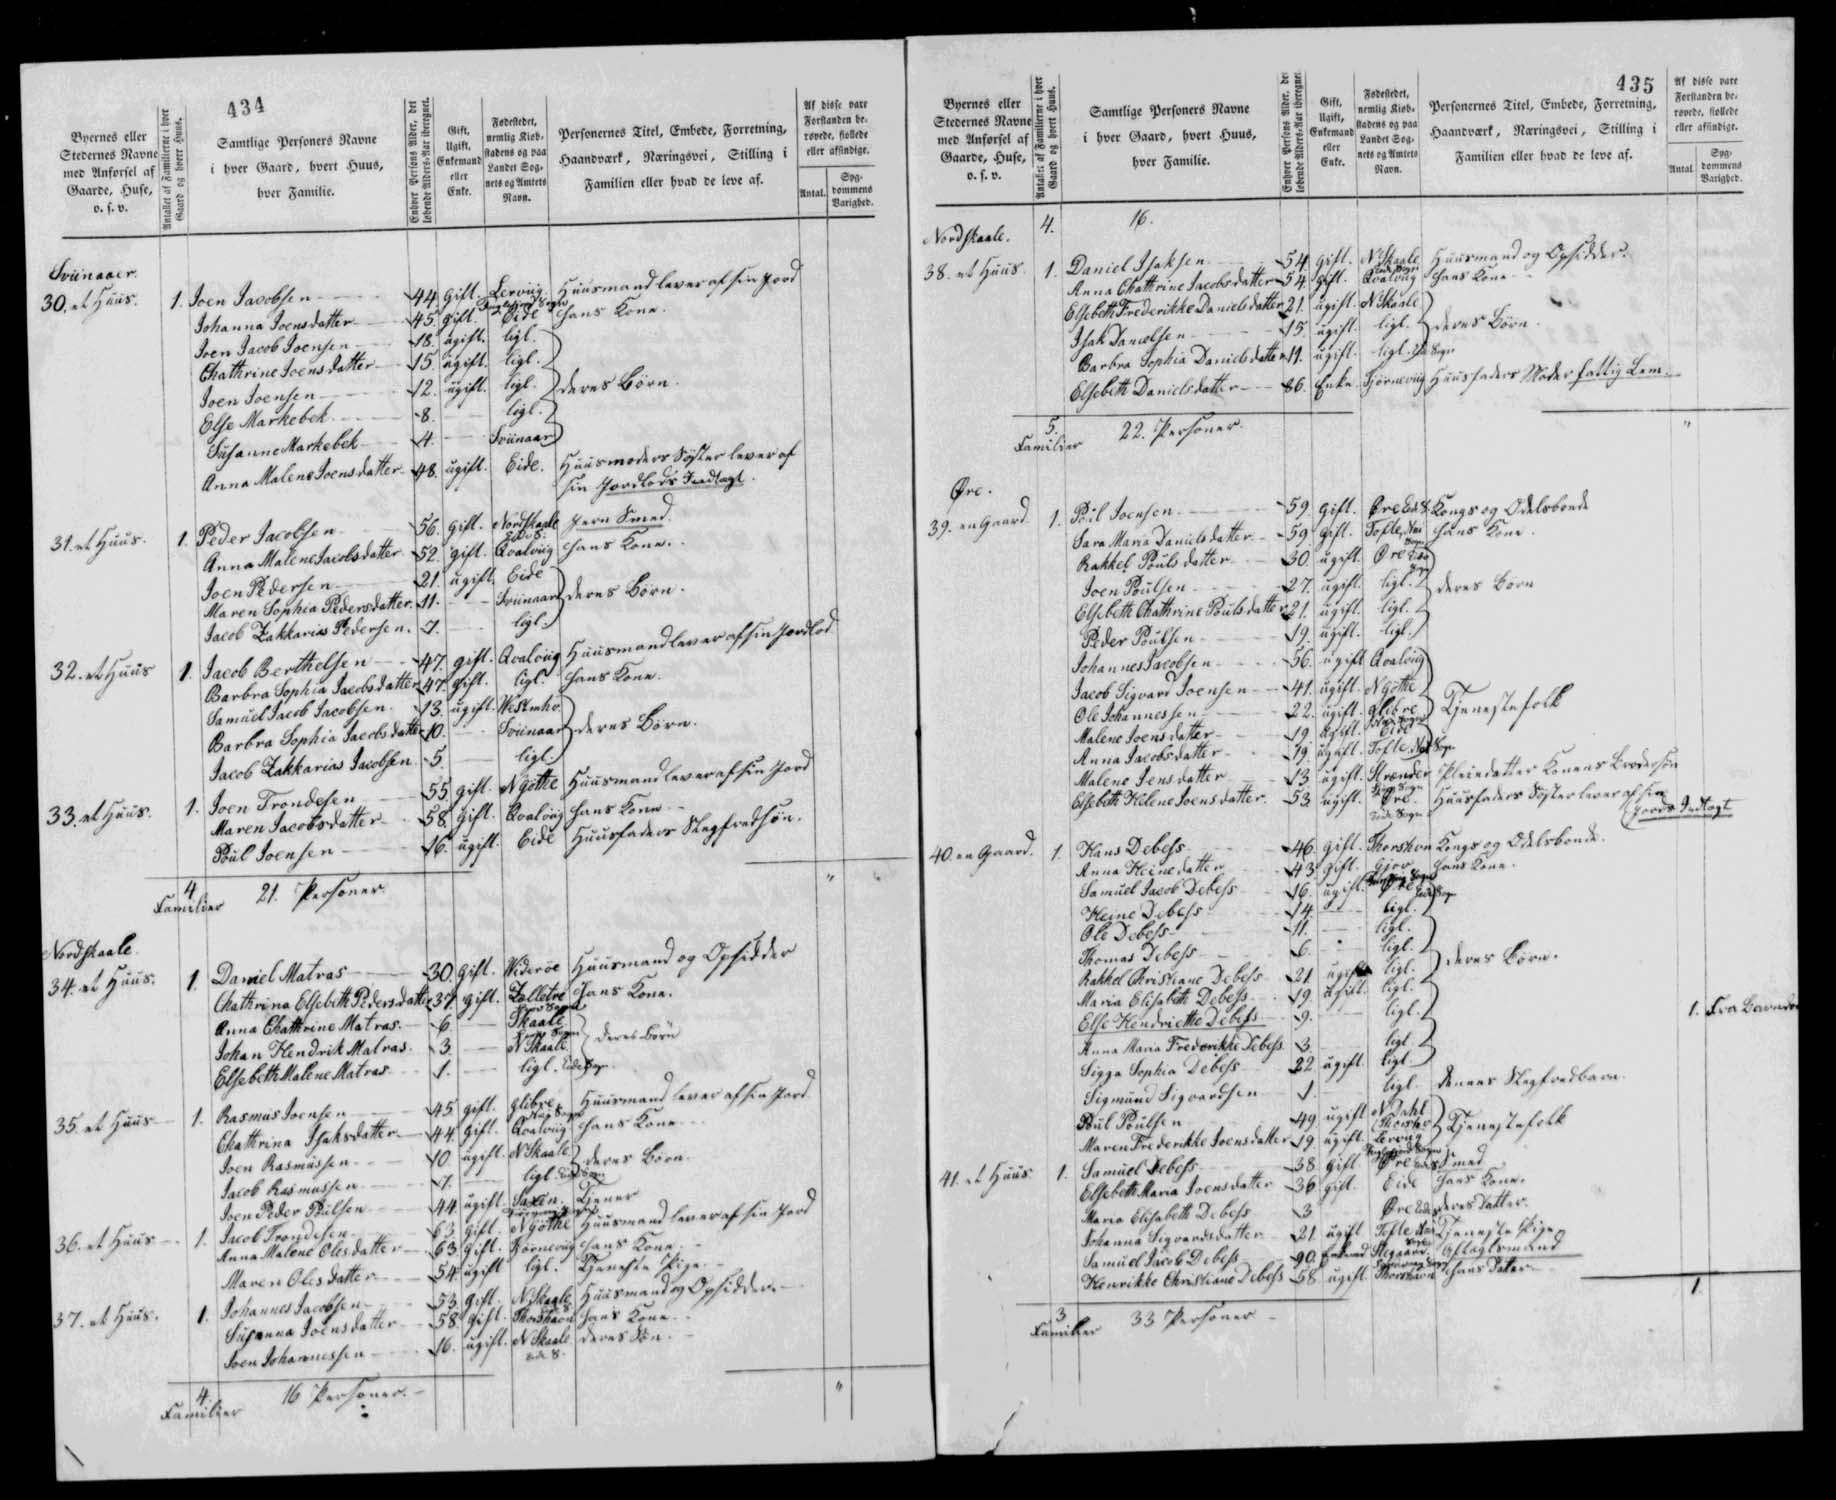 434
Byernes eller Stedernes Navne med Anførsel af Gaarde, Huse, o. s. v.
Antallet af Familierne i hver Gaard og hvert Huus.
Samtlige Personers Navne i hver Gaard, hvert Huus, hver Familie.
Enhver Persons Alder, det løbende Alders-Aar iberegnet.
Gift, Ugift, Enkemand eller Enke.
Fødestedet, nemlig Kiøbstadens og paa Landet Sognets og Amtets Navn.
Personernes Titel, Embede, Forretning, Haandværk, Næringsvei, Stilling i Familien eller hvad de leve af.
Af disse vare Forstanden berøvede, fiollede eller affindige.
Antal.
Sygdommens Varighed.
Sviinaaer.
30. et Huus. 1. Joen Jacobsen 44. gift. Lervug Huusmand lever af sin Jord
Johanna Joensdatter 45. gift. Eide hans Kone.
Joen Jacob Joensen 18. ugift. ligl.
Chathrine Joensdatter 15. ugift. ligl.
Joen Joensen 12. ugift. ligl. deres Børn.
Else Markebek 8. ligl.
Susanne Markebek 4. Sviinaar
Anna Malene Joensdatter 48. ugift. Eide. Huusmoders Søster lever af
sin Jordlods Indtægt.
31. et Huus. 1. Peder Jacobsen 56. gift. Nordskaale Jern Smed.
Anna Malene Jacobsdatter 52. gift. Qvalvüg hans Kone.
Joen Pedersen 21. ugift. Eide
Maren Sophia Pedersdatter 11. Sviinaar deres Børn.
Jacob Zakkarias Pedersen. 7. ligl.
32. et Huus 1. Jacob Berthelsen 47. gift. Qvalvüg Huusmand lever af sin Jordlod
Barbra Sophia Jacobsdatter 47. gift. ligl. hans Kone.
Samuel Jacob Jacobsen. 13. ugift. Westmho.
Barbra Sophia Jacobsdatter 10. Sviinaar deres Børn.
Jacob Zakkarias Jacobsen 5. ligl.
33. et Huus. 1. Joen Trondesen 55. gift. N Gøthe Huusmand lever af sin Jord
Maren Jacobsdatter 58. gift. Qvalvüg hans Kone
Poul Joensen 16. ugift. Eide Huusfaders Slegfredsøn.
4 Familier 21. Personer. "
Nordskaale.
34. et Huus. 1. Daniel Matras 30. gift. Widerøe Huusmand og Opsidder
Chathrina Elsebeth Pedersdatter 37. gift. Zelletræ hans Kone.
Anna Chathrine Matras. 6. Skaale
Johan Hendrik Matras. 3. N Skaale deres Børn
Elsebeth Malene Matras 1. ligl. Eide Sogn
35. et Huus 1. Rasmus Joensen 45. gift. Glibre Huusmand lever af sin Jord
Chathrina Isaksdatter 44. gift. Qvalvüg hans Kone
Joen Rasmussen 10. ugift. N Skaale deres Børn.
Jacob Rasmussen 7. ligl.
Joen Peder Poulsen 44. ugift. Saxen. Tjener
36. et Huus 1. Jacob Trondesen 63. gift. N Gøthe Huusmand lever af sin Jord
Anna Malene Olesdatter 63. gift. Kørnevüg hans Kone.
Maren Olesdatter 54. ugift ligl. Tjeneste Pige.
37. et Huus. 1. Johannes Jacobsen 53. gift. N Skaale Huusmand og Opsidder.
Susanna Joensdatter 58. gift. Thorshavn hans Kone.
Joen Johannessen 16. ugift. N Skaale deres Søn.
Eide S.
4. Familier 16 Personer. "
435
Byernes eller Stedernes Navne med Anførsel af Gaarde, Huse, o. s. v.
Antallet af Familierne i hver Gaard og hvert Huus.
Samtlige Personers Navne i hver Gaard, hvert Huus, hver Familie.
Enhver Persons Alder, det løbende Alders-Aar iberegnet.
Gift, Ugift, Enkemand eller Enke.
Fødestedet, nemlig Kiøbstadens og paa Landet Sognets og Amtets Navn.
Personernes Titel, Embede, Forretning, Haandværk, Næringsvei, Stilling i Familien eller hvad de leve af.
Af disse vare Forstanden berøvede, fiollede eller affindige.
Antal.
Sygdommens Varighed.
Nordskaale. 4. 16.
38. et Huus. 1. Daniel Isaksen 54. gift. N Skaale Huusmand og Opsidder.
Anna Chathrine Jacobsdatter 54. gift. Qvalvüg hans Kone
Elsebeth Frederikke Danielsdatter 21. ugift. N Skaale
Isak Danielsen 15. ugift. ligl. deres Børn.
Barbra Sophia Danielsdatter 11. ugift. ligl. Eide Sogn
Elsebeth Danielsdatter 86. Enke Tjørnevüg Huusfaders Moder fattig Lem.
5. Familier 22. Personer. "
Øre.
39. en Gaard 1. Poul Joensen 59. gift. Øre Eide S. Kongs og Odelsbonde
Sara Maria Danielsdatter 59. gift. Tofte, hans Kone.
Rakkel Poulsdatter 30. ugift. Øre
Joen Poulsen 27. ugift. ligl. deres Børn
Elsebeth Chathrine Poulsdatter 21. ugift. ligl.
Peder Poulsen 19. ugift. ligl.
Johannes Jacobsen 56. ugift Qvalvüg
Jacob Sigvard Joensen 41. ugift. N Gøthe
Ole Johannessen 22. ugift. Glibre Tjenestefolk
Malene Joensdatter 19. ugift. Eide
Anna Jacobsdatter 19. ugift. Tofte,
Malene Jensdatter 13 ugift. Strænder Pleiedatter Konens Brodersøn
Elsebeth Helene Joensdatter. 53. ugift. Øre. Huusfaders Søster lever af sin
Eide Sogn Jords Indtægt
40. en Gaard. 1. Hans Debess 46. gift. Thorshavn Kongs og Odelsbonde.
Anna Heinedatter 43. gift. Gjov hans Kone.
Samuel Jacob Debess 16. ugift. Øre
Heine Debess 14. ligl.
Ole Debess 11. ligl.
Thomas Debess 6. ligl. deres Børn.
Rakkel Christiane Debess 21. ugift ligl.
Maria Elisabeth Debess 19. ugift. ligl.
Else Hendriethe Debess 9. ligl. 1. Fra Barndom
Anna Maria Frederikke Debess 3. ligl.
Sigga Sophia Debess 22. ugift. ligl.
Sigmund Sigvardsen 1. ligl. dennes Slegfredbarn.
Poul Poulsen 49. ugift N Dahl
Maren Frederikke Joensdatter 19 ugift. Lervug Tjenestefolk
41. et Huus. 1. Samuel Debess 38. gift Øre Smed
Elsebeth Maria Joensdatter 36. gift. Eide hans Kone.
Maria Elisabeth Debess 3 Øre deres Datter.
Johanna Sigvardsdatter 21. ugift Tofte Tjeneste Pige
Samuel Jacob Debess 90. Enkemd Stegaard. Aftægtsmand
Henrikke Christiane Debess 58. ugift. Thorshavn hans Dater
3 Familier 33 Personer 1